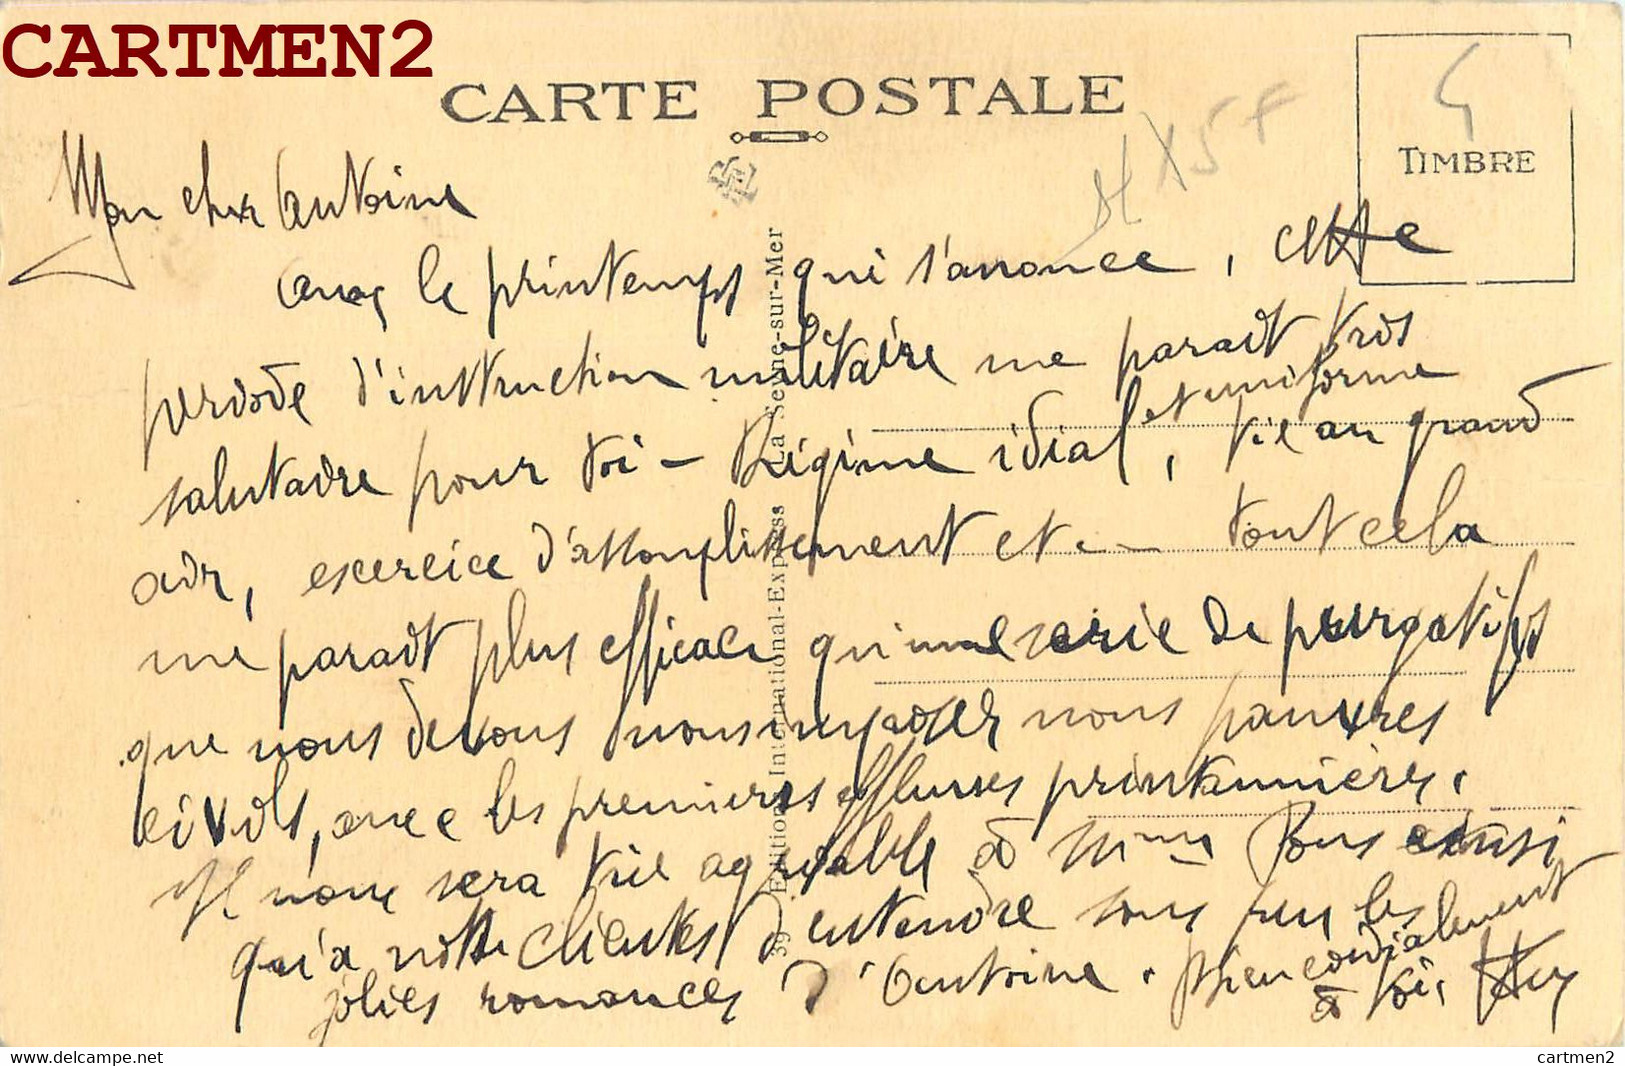 CARTMEN2
CARTE POSTALE
TIMBRE
Mon cher Antoine
avec le printemps qui s'annonce, cette
periode d'instruction militaire me parait très
salutaire pour toi - Régime idial et uniforme, vie au grand
air, exercice d'assouplissement et -- tout cela
me parait plus efficace qu'une serie de purgatifs
que nous devons nous imposer nous pauvres
civils, avec les premieres effluves printannières.
Il nous sera très agréable à Mme Pons ainsi
qu'a notre clientes d'entendre sous peu les
jolies romances d'Antoine. Bien cordialement
à toi.
39 Edition International-Express La Seyne-sur-Mer
cartmen2
https://www.delcampe.net